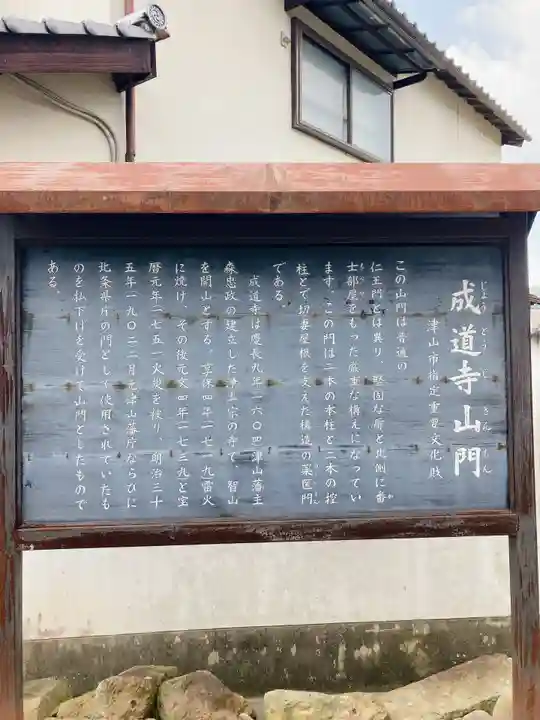 じょうどうじさんもん
成道寺山門
津山市指定重要文化財
この山門は普通の
仁王門とは異り、堅固な扉と北側に番
士部屋をもった厳重な構えになってい
ます。この門は二本の本柱と二本の控
柱とで切妻屋根を支えた構造の薬医門
である。
成道寺は慶長九年一六〇四津山藩主
森忠政の建立した浄土宗の寺で、智山
を開山とする。享保四年一七一九雷火
に焼け、その後元文四年一七三九と宝
暦元年一七五一火災を被り、明治三十
五年一九〇二二月元津山藩庁ならびに
北条県庁の門として使用されていたも
のを払下げを受けて山門としたもので
ある。